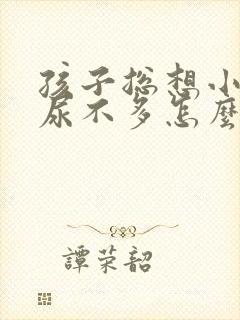 孩子总想小
尿不多怎麼
譚荣韶